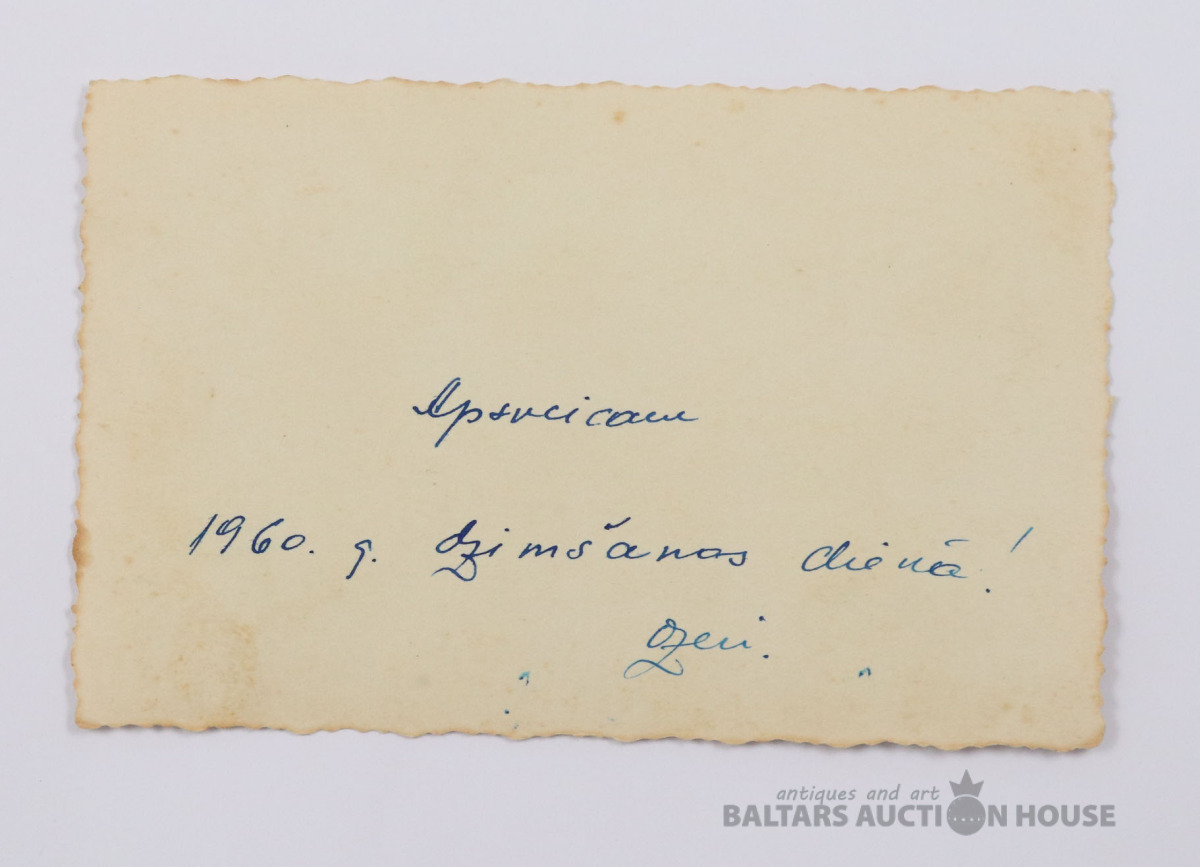 Apsveicam
1960. g. dzimšanas dienā!
antiques and art
BALTARS AUCTION HOUSE